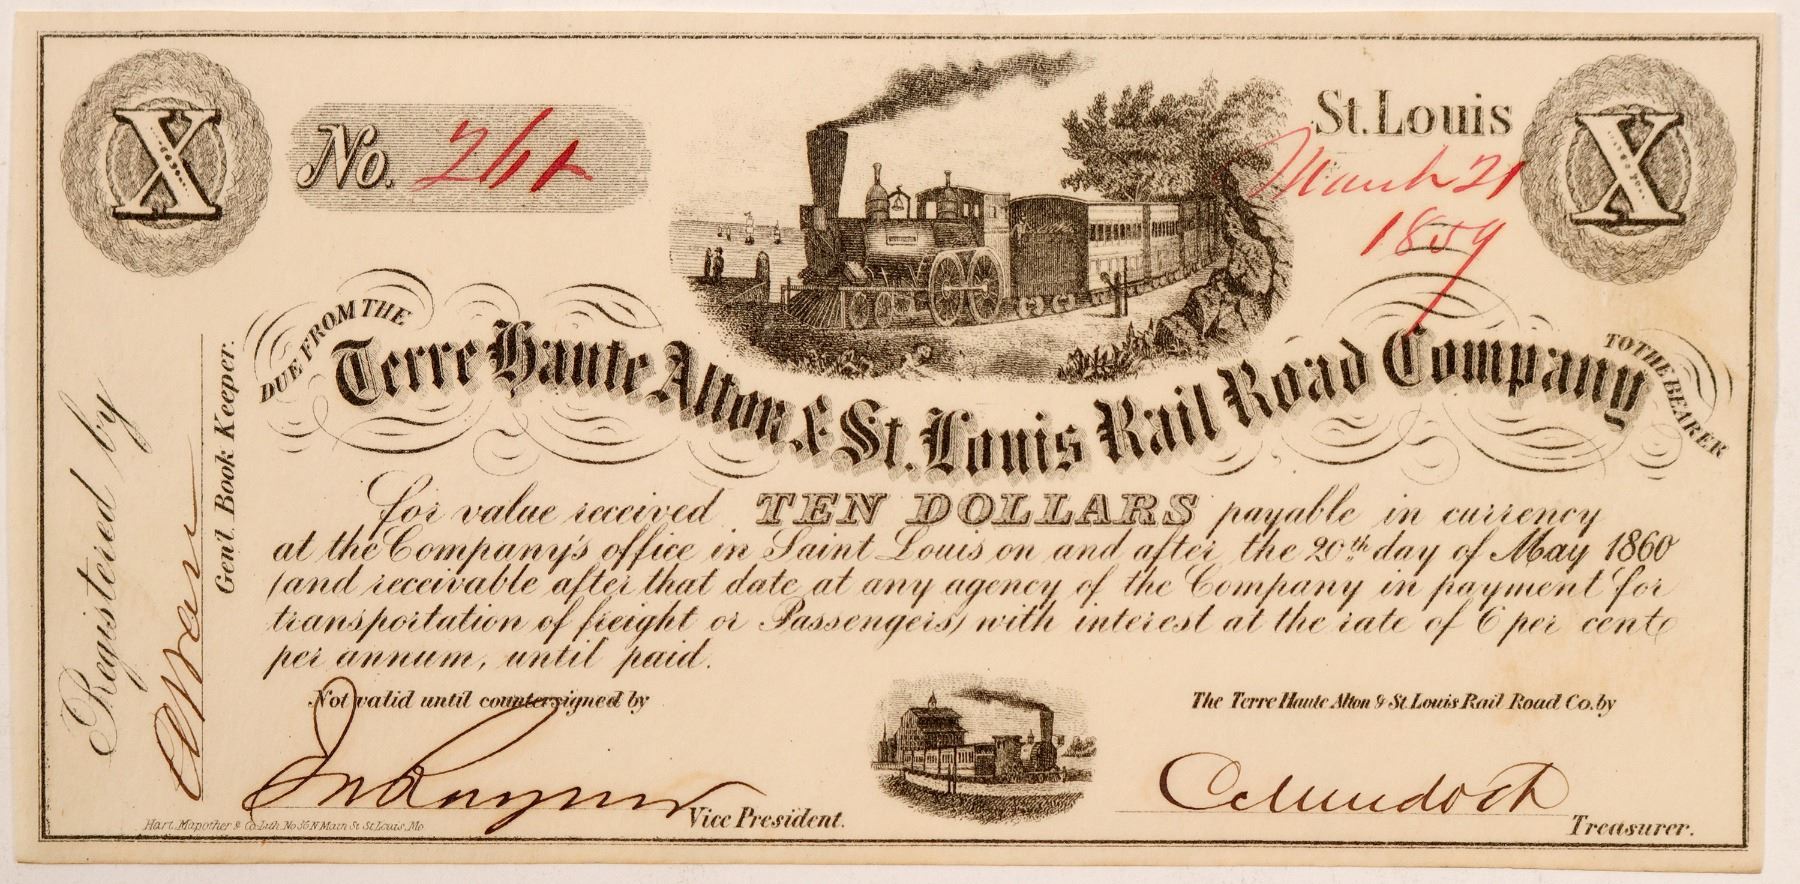 X
No.
St. Louis
March 21
1859
X
DUE FROM THE
Terre Haute Alton & St. Louis Rail Road Company
TO THE BEARER
For value received TEN DOLLARS payable in currency
at the Company's office in Saint Louis on and after the 20th day of May 1860
(and receivable after that date at any agency of the Company in payment for
transportation of freight or Passengers) with interest at the rate of 6 per cent
per annum, until paid.
Registered by
Gen'l. Book Keeper.
Not valid until countersigned by
The Terre Haute Alton & St. Louis Rail Road Co. by
Vice President.
Murdock
Treasurer.
Hart, Mapother & Co. Lith. No 36 N Main St St Louis, Mo.